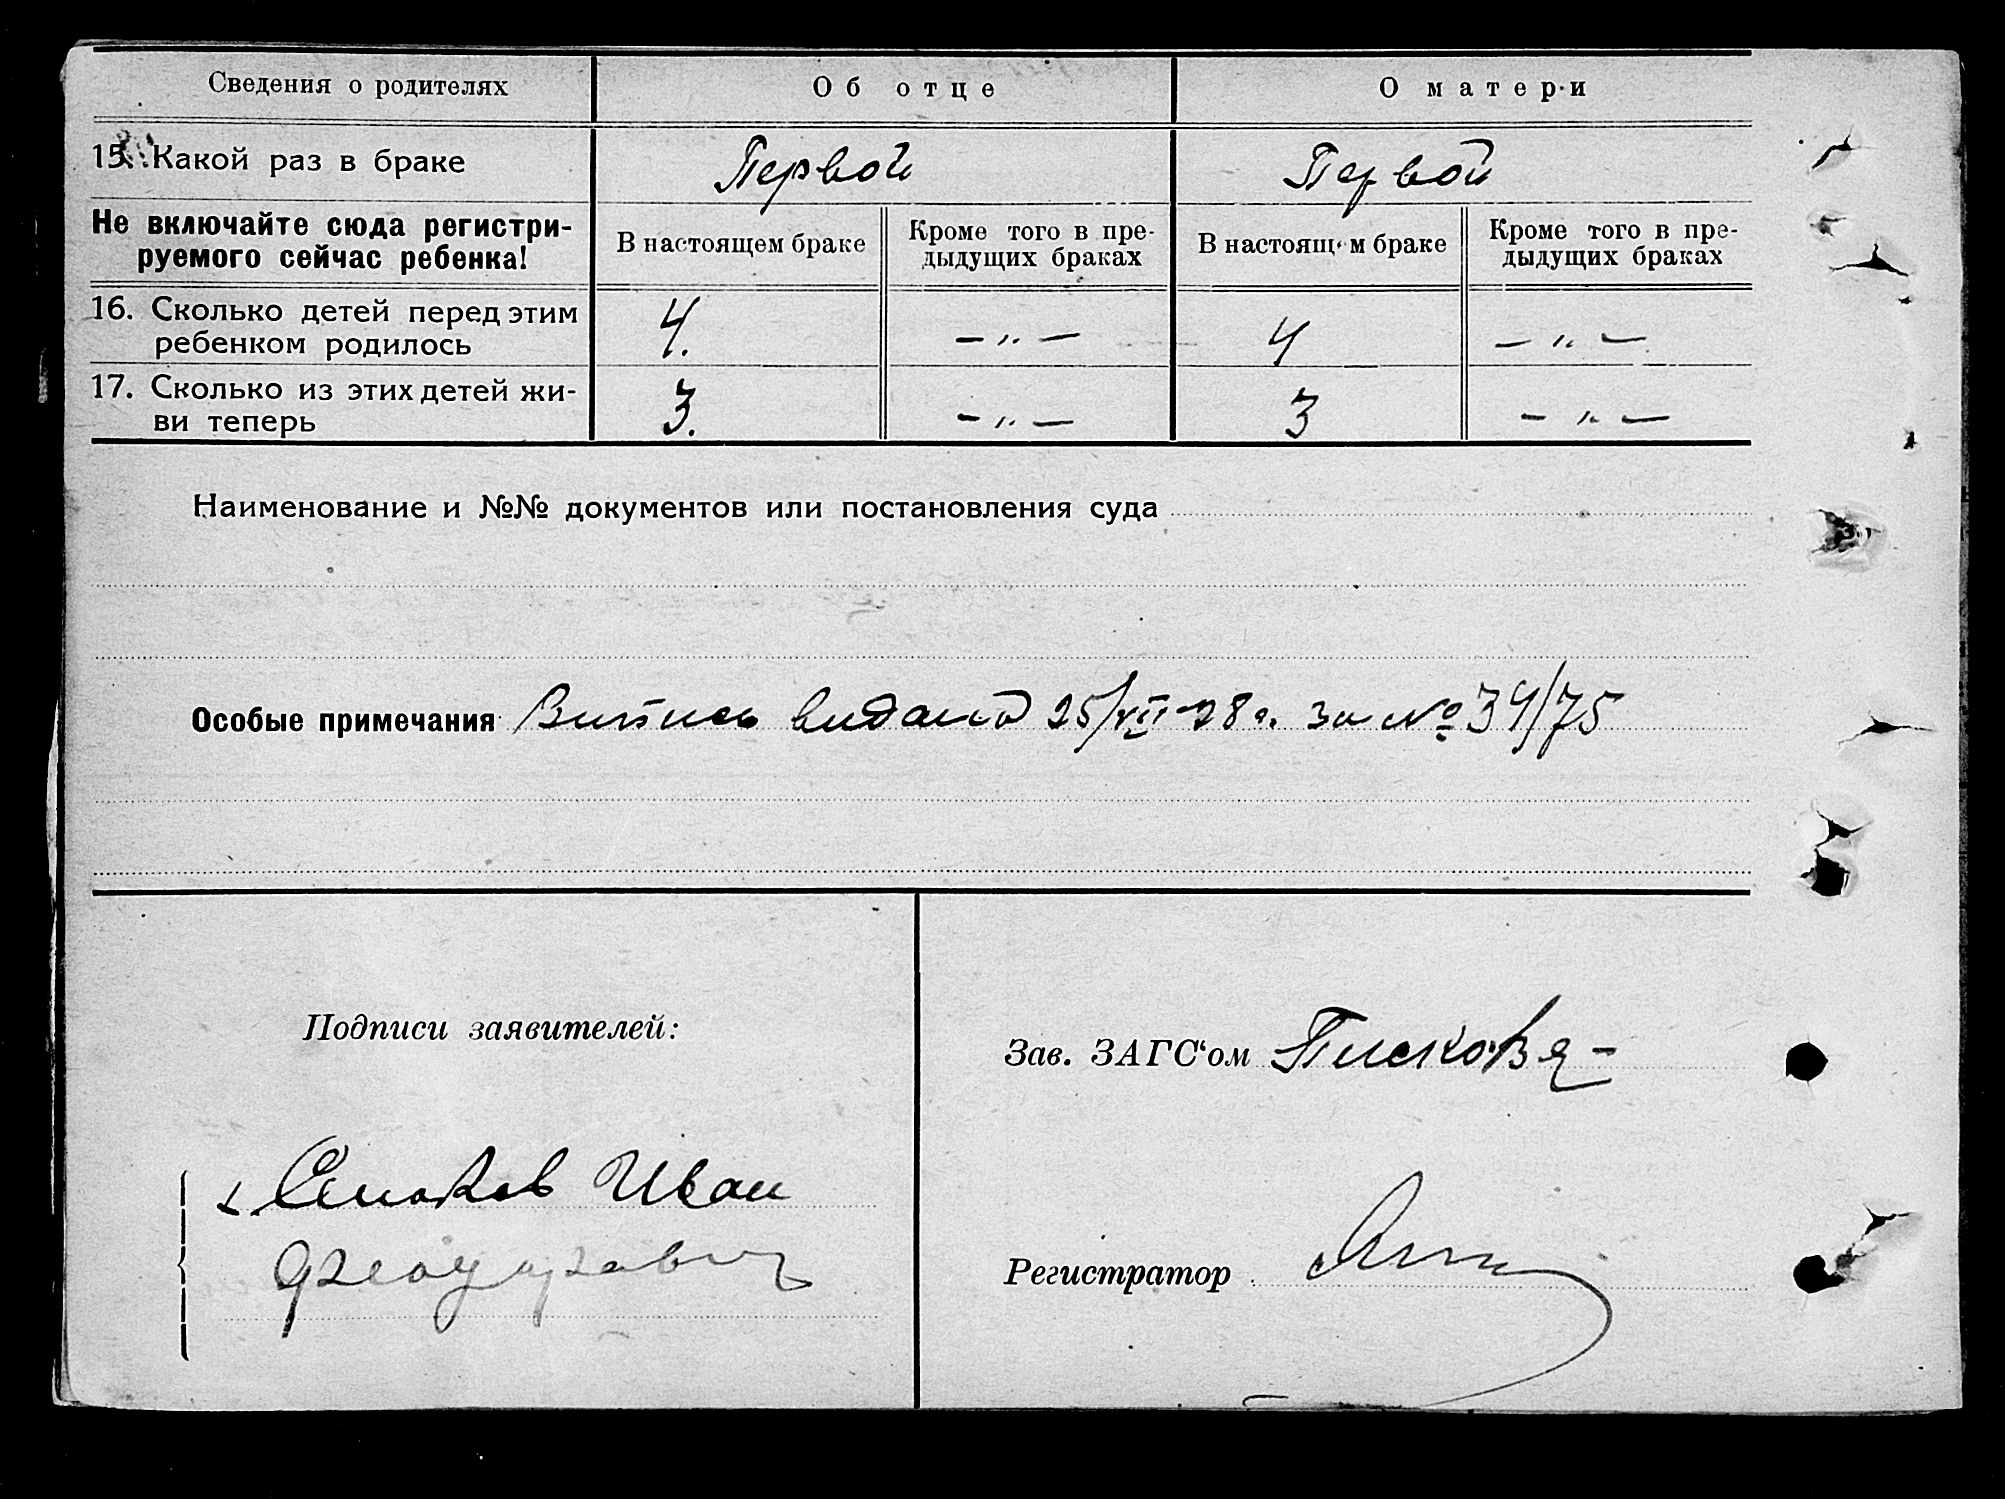 Сведения о родителях
Об отце
О матери
15. Какой раз в браке
Первой
Первой
Не включайте сюда регистри-
руемого сейчас ребенка!
В настоящем браке
Кроме того в пре-
дыдущих браках
В настоящем браке
Кроме того в пре-
дыдущих браках
16. Сколько детей перед этим
ребенком родилось
4.
— „ —
4
— „ —
17. Сколько из этих детей жи-
ви теперь
3.
— „ —
3
— „ —
Наименование и №№ документов или постановления суда
Особые примечания Випись видана 25/VII-28 г. за № 34/75
Подписи заявителей:
Зав. ЗАГС‘ом Пискова
Иван
Регистратор